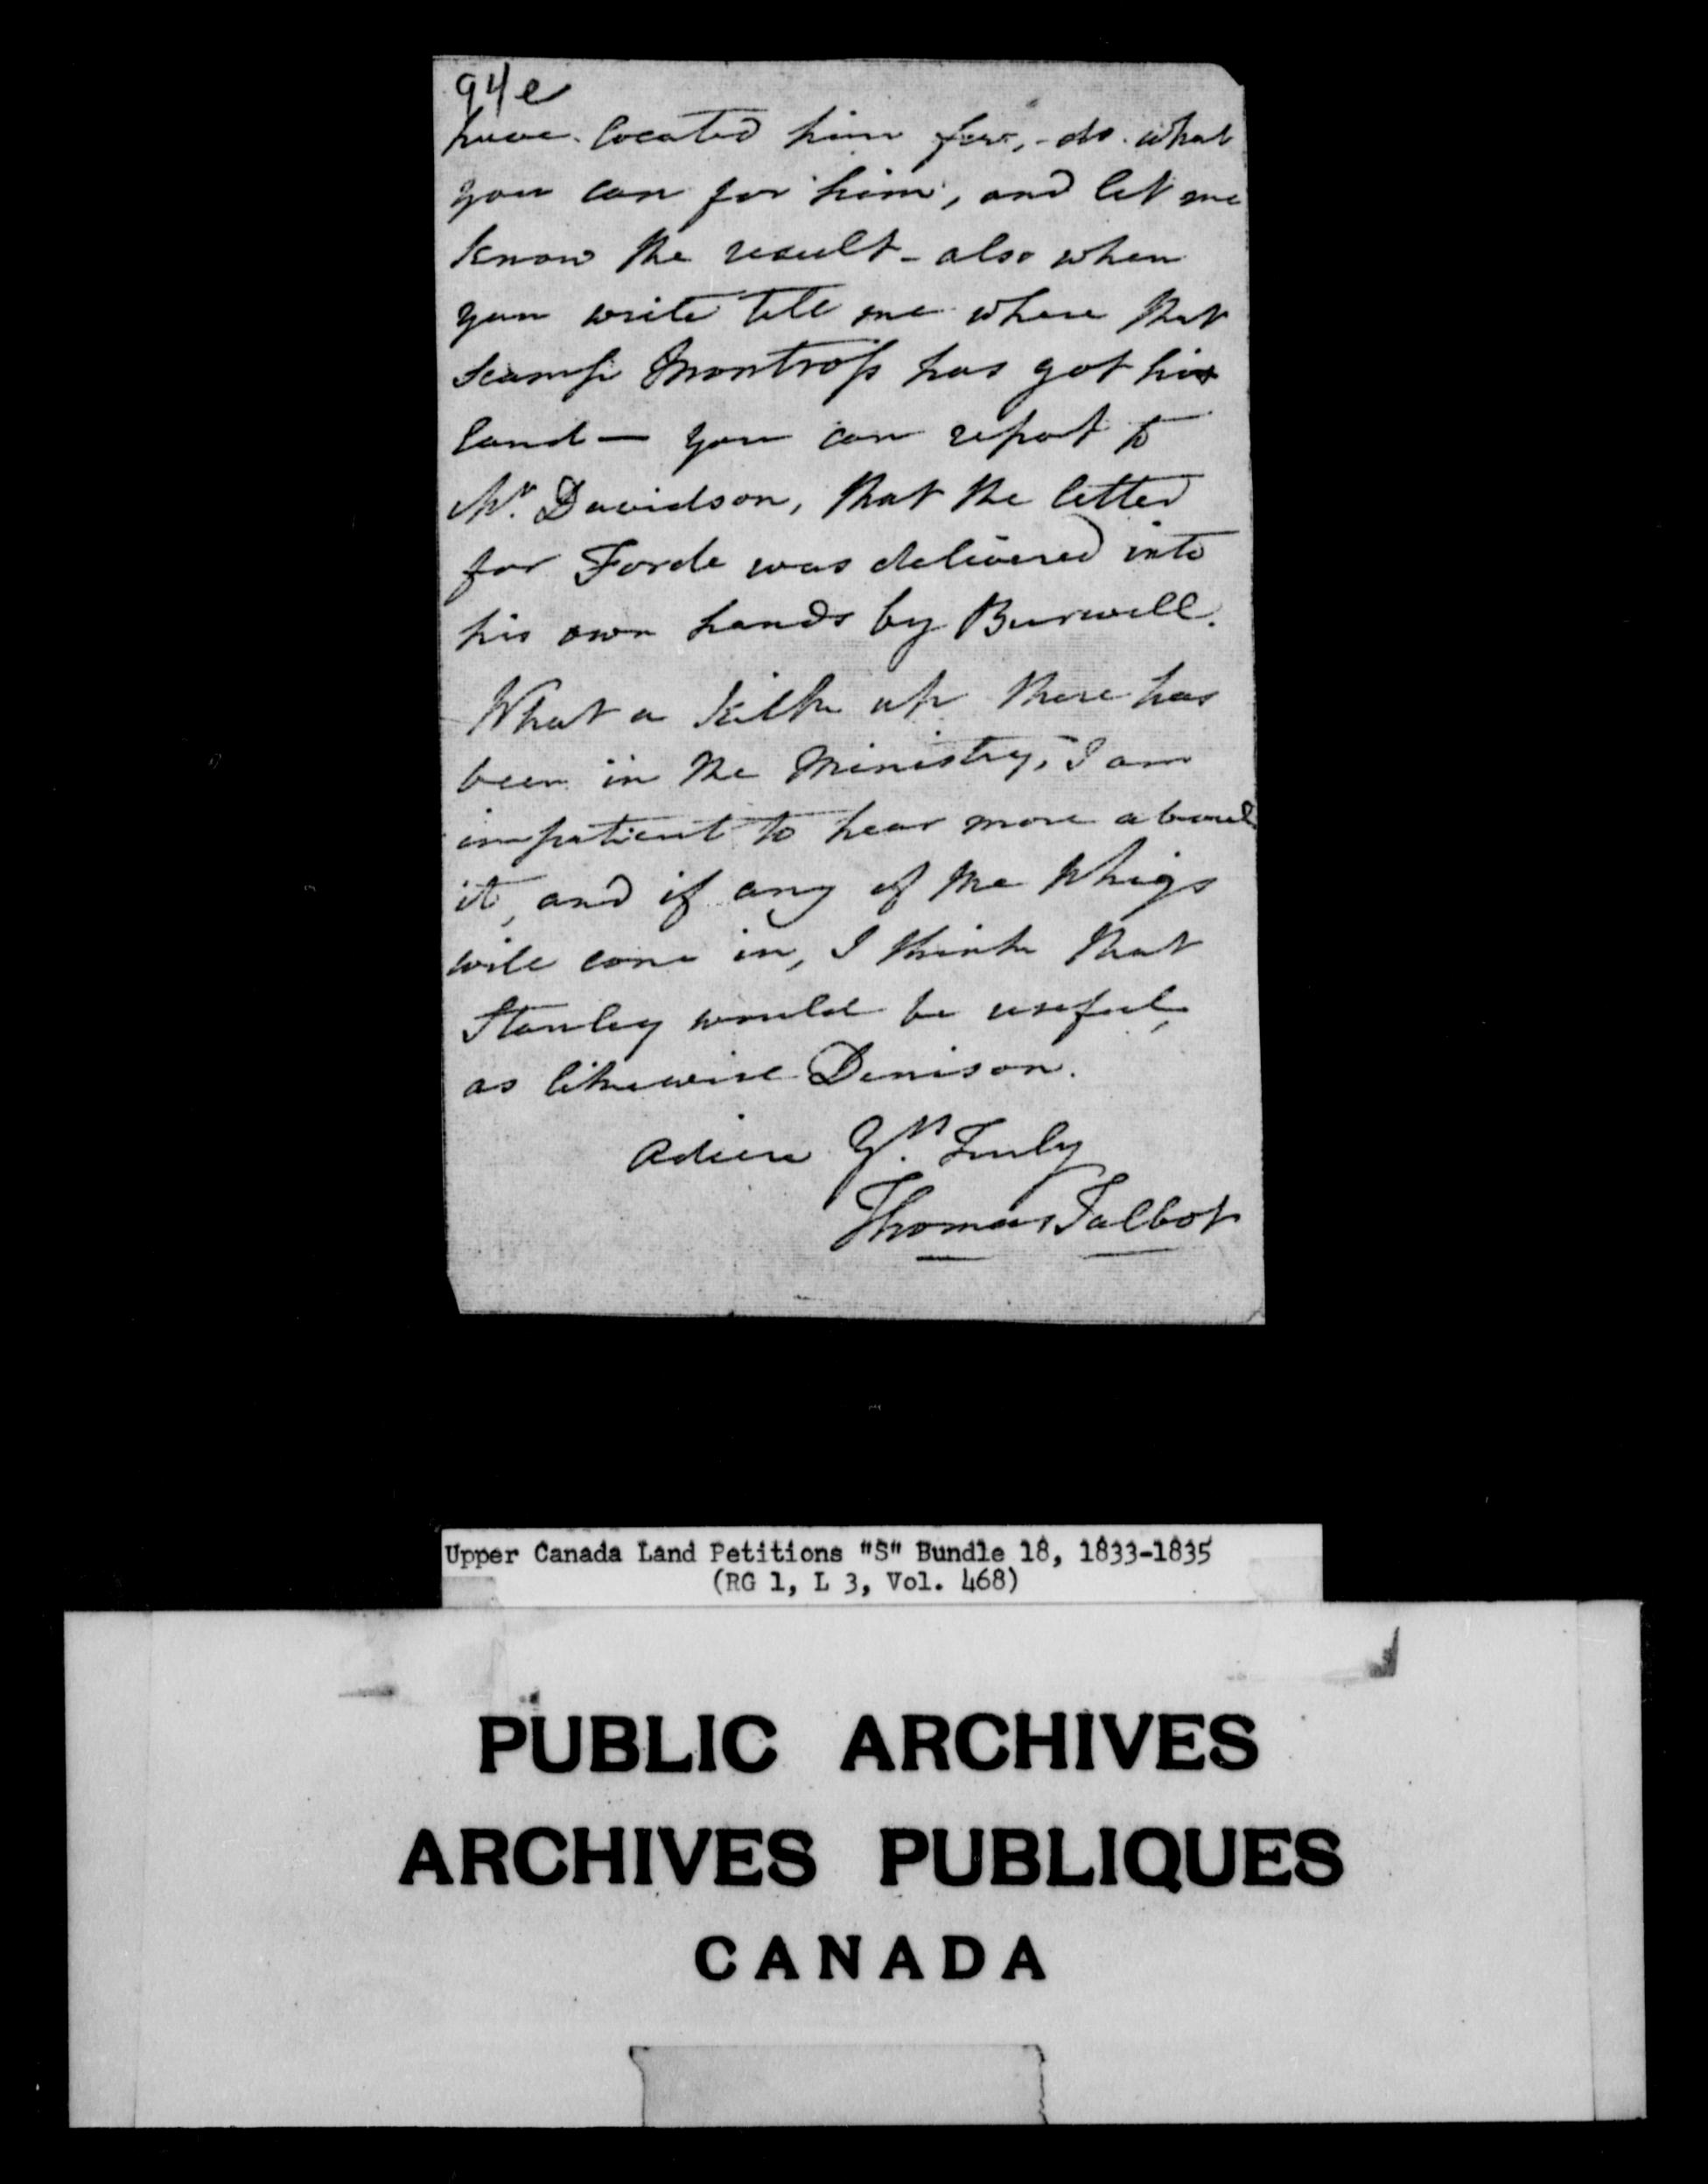 94e
have located him for, - do what
you can for him, and let me
know the result - also when
you write tell me where that
scamp Montross has got his
land — you can report to
Mr. Davidson, that the letter
for Forde was delivered into
his own hands by Burwell.
What a kick up there has
been in the Ministry, I am
impatient to hear more about
it, and if any of the Whigs
will come in, I think that
Stanley would be useful,
as likewise Denison.
Adieu Yrs Truly
Thomas Talbot
Upper Canada Land Petitions "S" Bundle 18, 1833-1835
(RG 1, L 3, Vol. 468)
PUBLIC ARCHIVES
ARCHIVES PUBLIQUES
CANADA